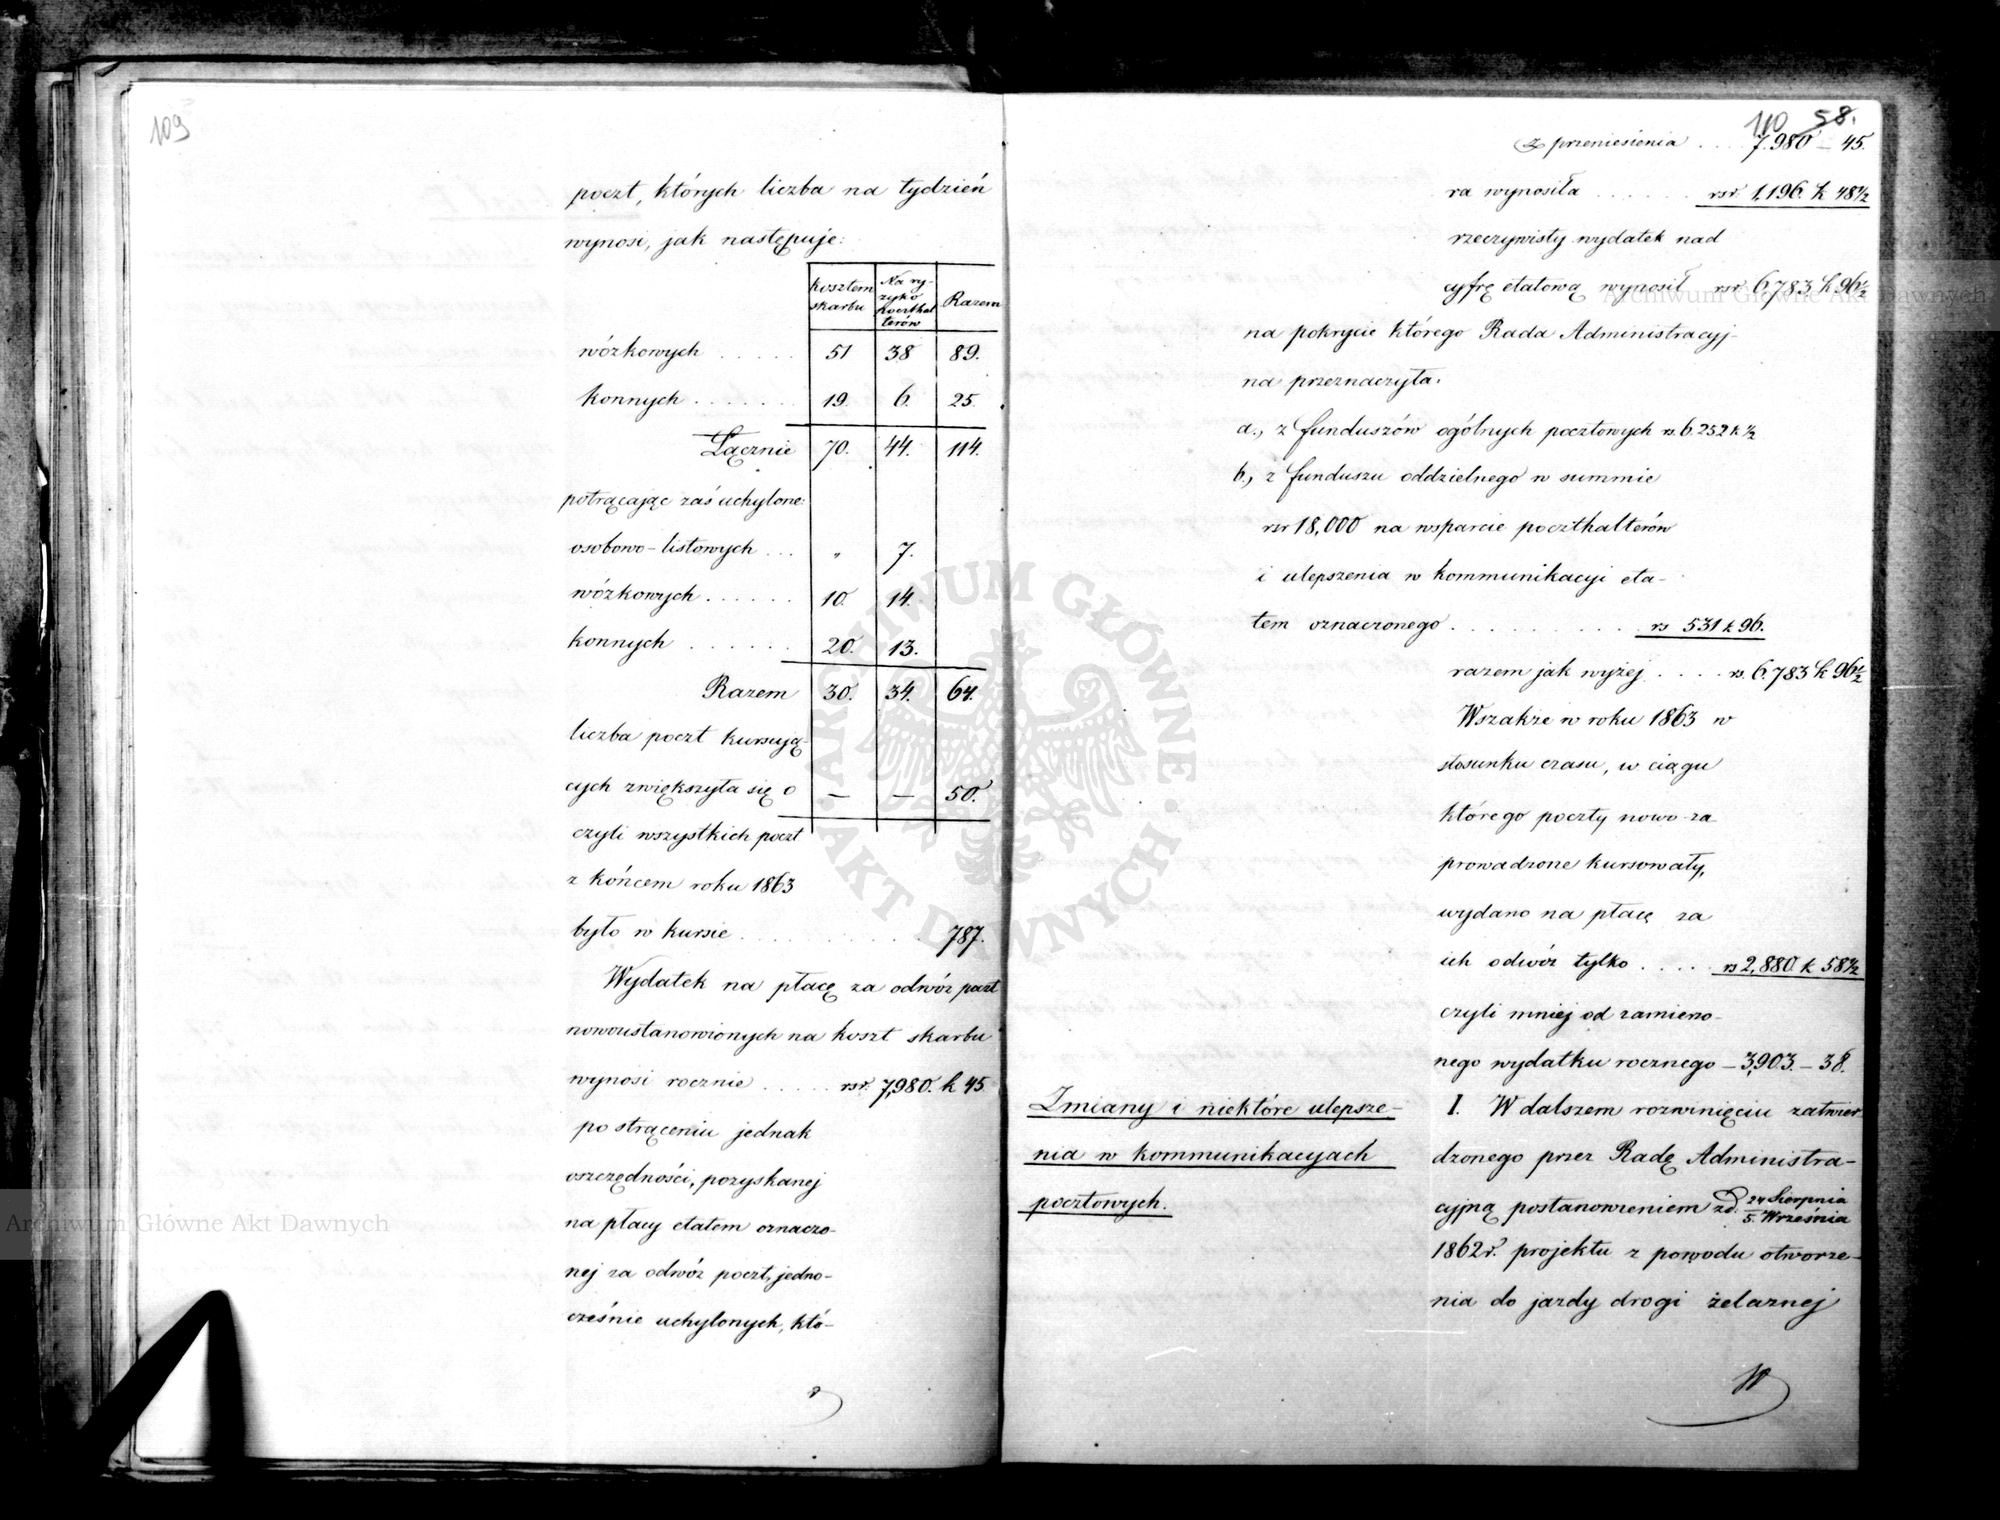 109
poczt, których liczba na tydzień
wynosi, jak następuje:
kosztem skarbu | Na ryzyko poczthalterów | Razem
wózkowych . . . . . 51 38 89.
konnych . . . . . . 19. 6. 25.
Łącznie 70. 44. 114.
potrącając zaś uchylone:
osobowo-listowych . . . „ 7.
wózkowych . . . . . . 10. 14.
konnych . . . . . . 20. 13.
Razem 30. 34. 64.
liczba poczt kursują-
cych zwiększyła się o — — 50.
czyli wszystkich poczt
z końcem roku 1863
było w kursie . . . . . . . . . . 787.
Wydatek na płacę za odwóz poczt
nowoustanowionych na koszt skarbu
wynosi rocznie . . . . . rsr. 7,980. k 45
po strąceniu jednak
oszczędności, pozyskanej
na płacy etatem oznaczo-
nej za odwóz poczt, jedno-
cześnie uchylonych, któ-
110 58.
z przeniesienia . . . . 7.980 — 45.
ra wynosiła . . . . . . rsr. 1,196. k 48½
rzeczywisty wydatek nad
cyfrę etatową wynosił rsr. 6,783 k 96½
na pokrycie którego Rada Administracyj-
na przeznaczyła:
a., z funduszów ogólnych pocztowych rs. 6.252 k ½
b., z funduszu oddzielnego w summie
rsr 18,000 na wsparcie poczthalterów
i ulepszenia w kommunikacyi eta-
tem oznaczonego . . . . . . . . . . rs 531 k 96.
razem jak wyżej . . . . rs. 6.783 k 96½
Wszakże w roku 1863 w
stosunku czasu, w ciągu
którego poczty nowo-za
prowadzone kursowały,
wydano na płacę za
ich odwóz tylko . . . . . rs 2,880. k 58½
czyli mniej od zamieno-
nego wydatku rocznego — 3,903. — 38.
Zmiany i niektóre ulepsze-
nia w kommunikacyach
pocztowych.
I. W dalszem rozwinięciu zatwier
dzonego przez Radę Administra-
cyjną postanowieniem zd. 24 Sierpnia / 5. Września
1862 r. projektu z powodu otworze-
nia do jazdy drogi żelaznej
Archiwum Główne Akt Dawnych
Archiwum Główne Akt Dawnych
ARCHIWUM GŁÓWNE · AKT DAWNYCH ·